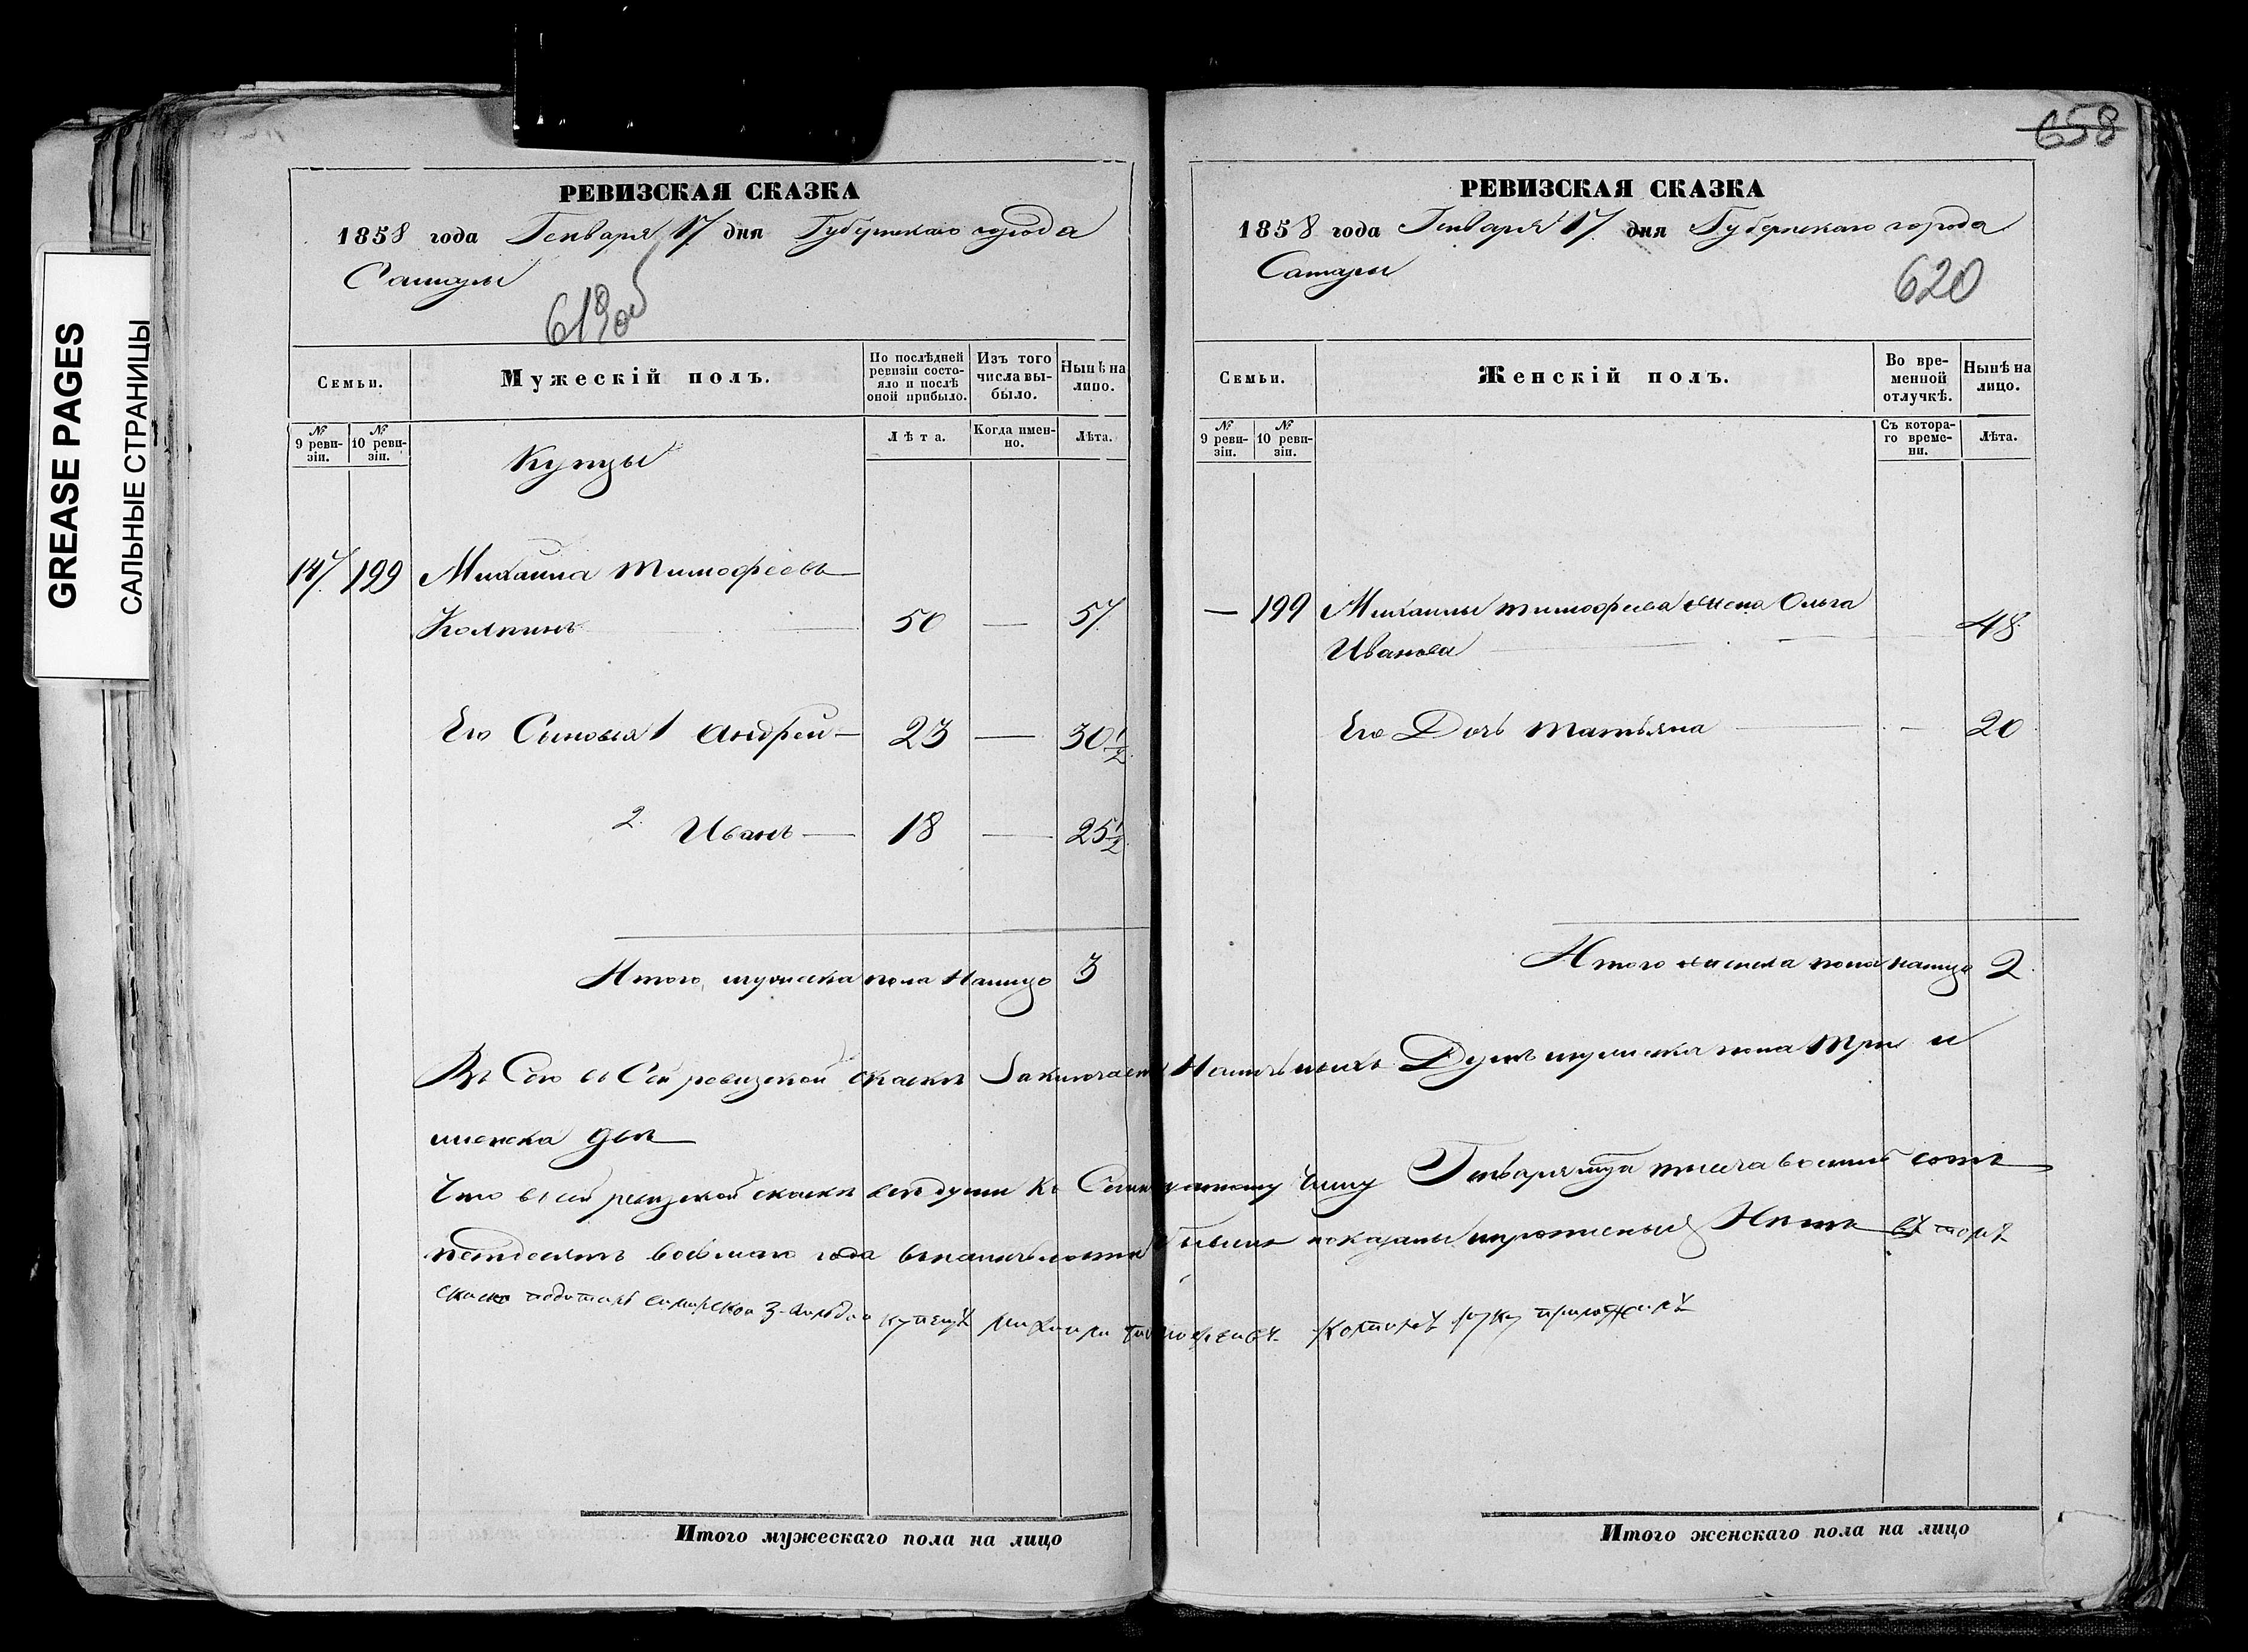 GREASE PAGES
САЛЬНЫЕ СТРАНИЦЫ
РЕВИЗСКАЯ СКАЗКА
1858 года Генваря 17 дня Губернскаго города
Самары
619об
Семьи.
Мужескій полъ.
По послѣдней ревизіи состояло и послѣ оной прибыло.
Изъ того числа выбыло.
Нынѣ на лицо.
№ 9 ревизіи.
№ 10 ревизіи.
Лѣта.
Когда именно.
Лѣта.
Купцы
147 199 Михаила Тимофеевъ
Колпинъ 50 — 57
Его Сыновья 1 Андрей — 23 — 30½
2 Иванъ — 18 — 25½
Итого мужеска пола Налицо 3
658
РЕВИЗСКАЯ СКАЗКА
1858 года Генваря 17 дня Губернскаго города
Самары
620
Семьи.
Женскій полъ.
Во временной отлучкѣ.
Нынѣ на лицо.
№ 9 ревизіи.
№ 10 ревизіи.
Съ котораго времени.
Лѣта.
— 199 Михаилы Тимофеева жена Ольга
Иванова 48
Его Дочь Татьяна — 20
Итого женска пола налицо 2
Въ Сей ревизской скаскѣ Заключаетъ Наличныхъ Душъ мужеска пола три и
женска двѣ
Что въ сей ревизской скаскѣ все души къ Семнадцатому Числу Генваря тысяча восемьсотъ
петдесятъ восьмаго года въ наличьности были показаны прописныхъ Нѣтъ въ томъ
скаско подотель самарской 3-гильдии купецъ Михаила Тимофеивъ Колпинъ руку приложилъ
Итого мужескаго пола на лицо
Итого женскаго пола на лицо